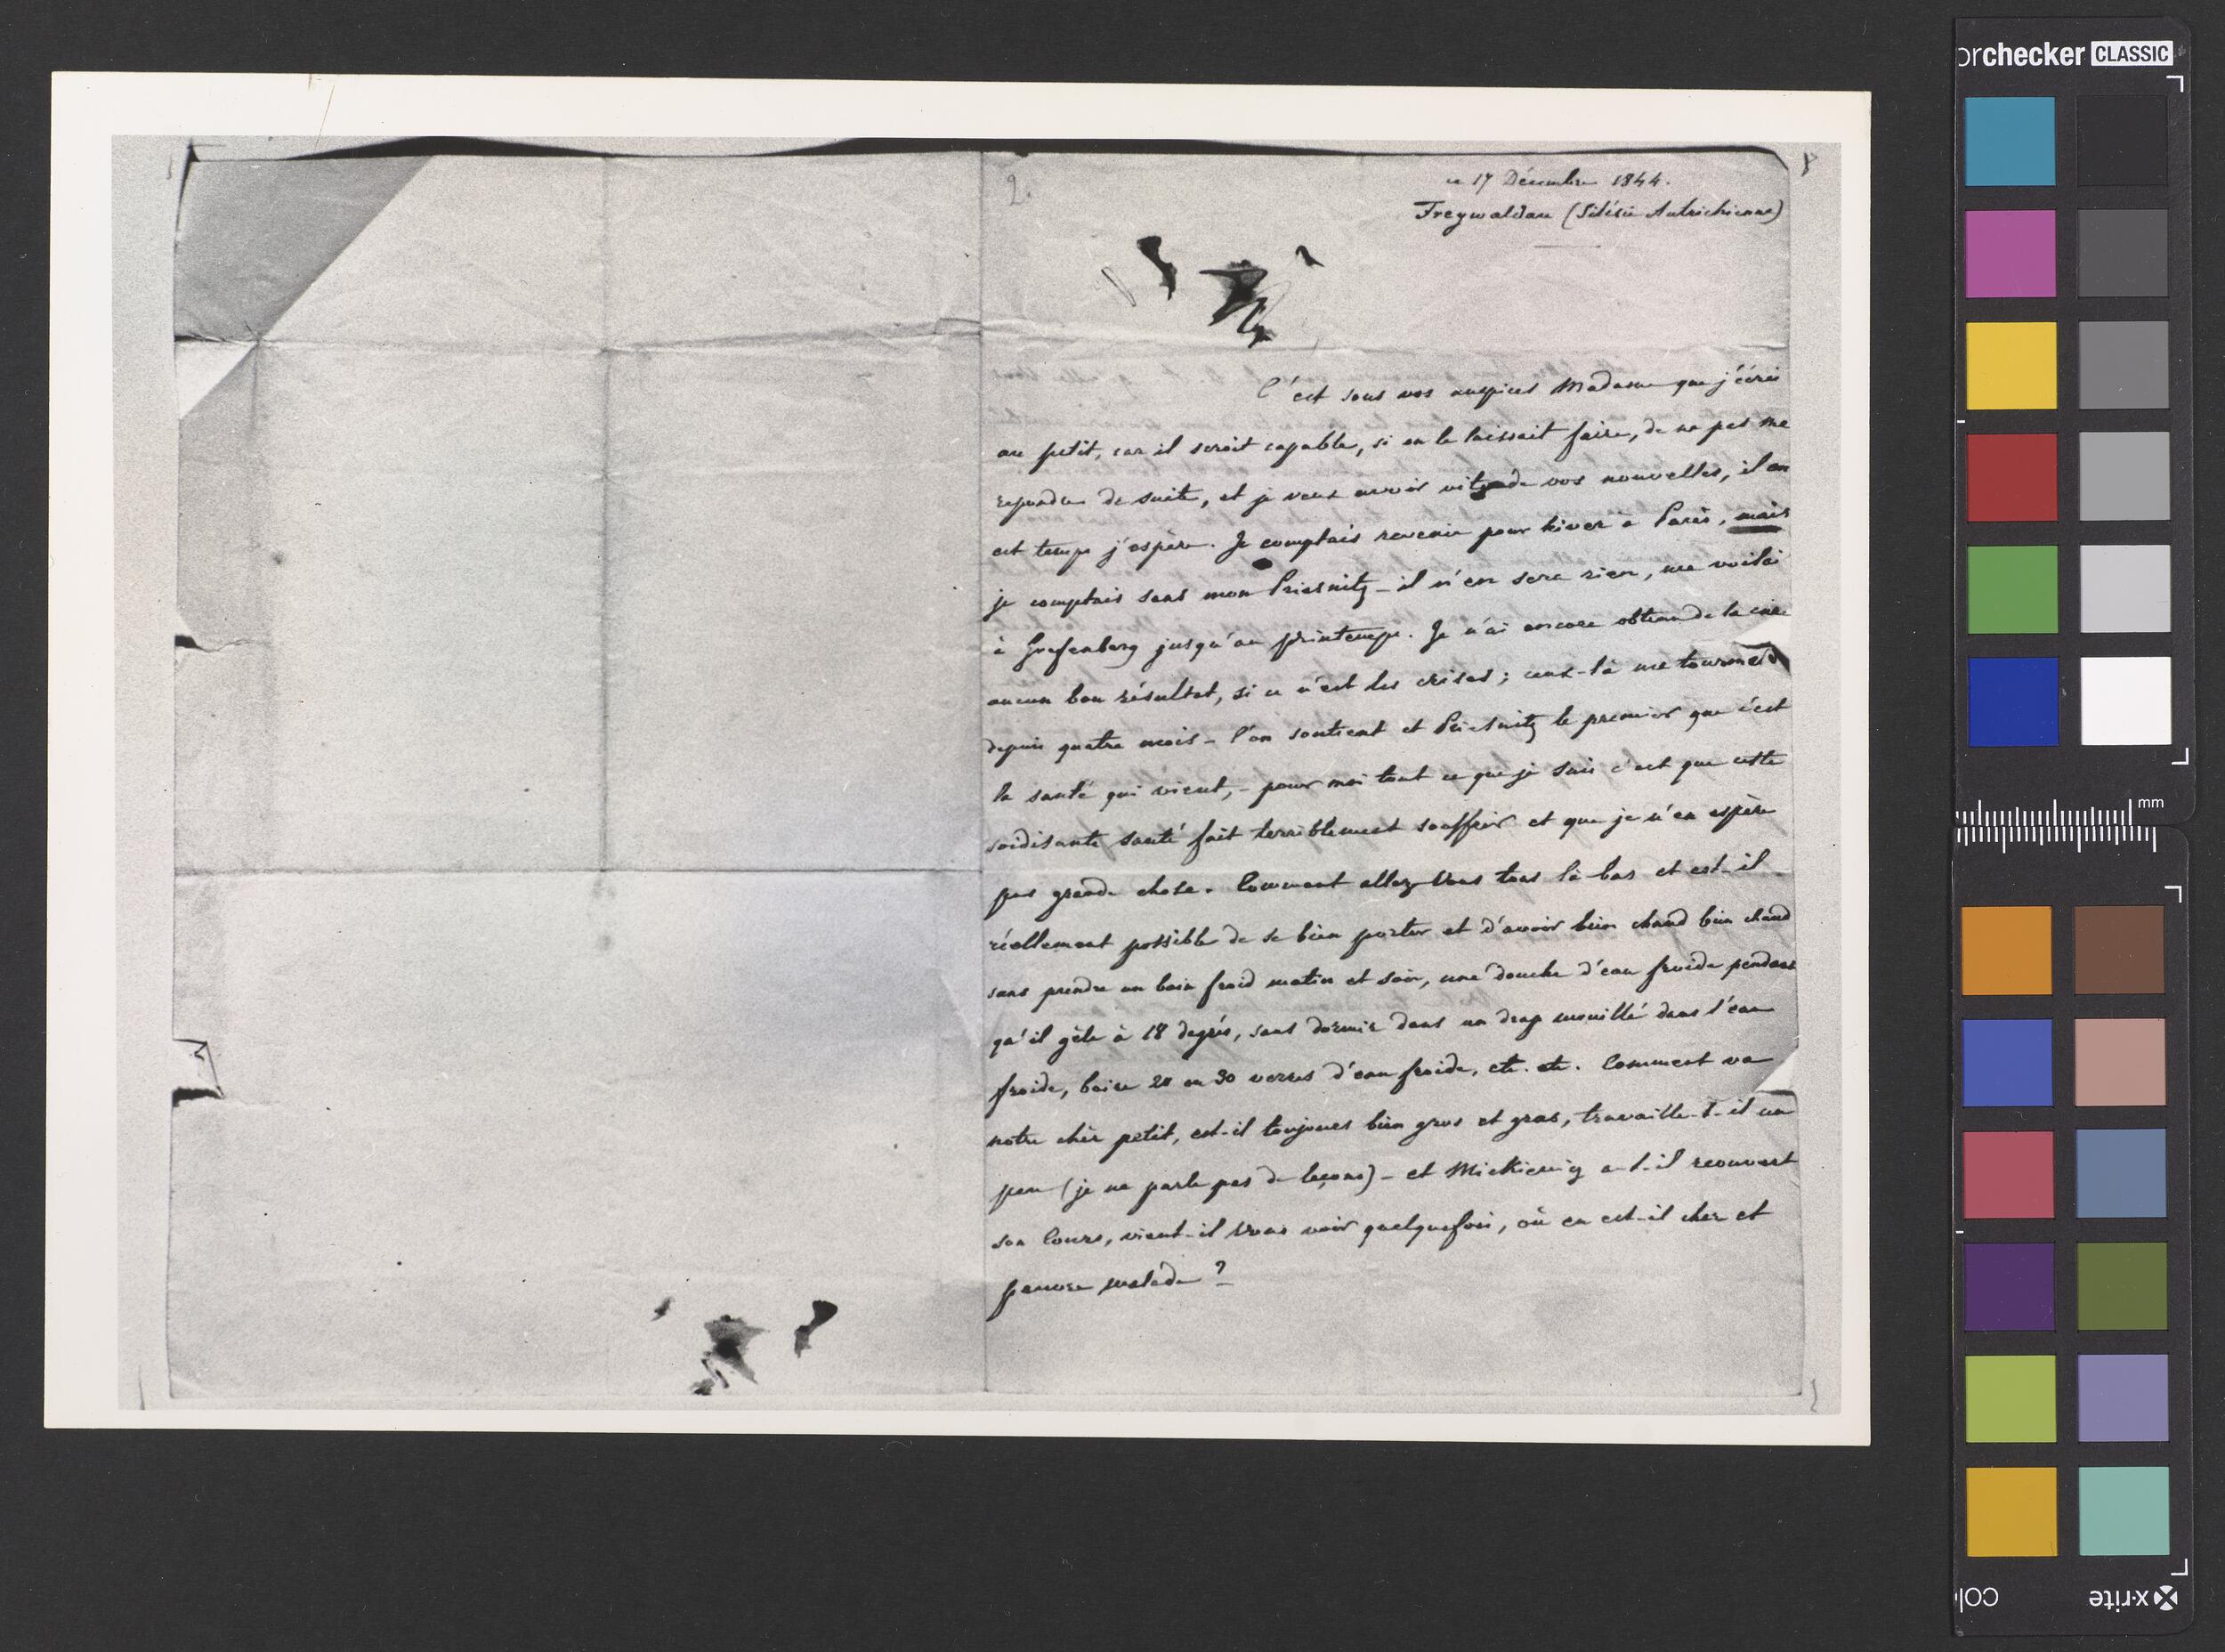 2.
ce 17 Décembre 1844.
Freywaldau (Silésie Autrichienne)
C'est sous vos auspices Madame que j'écris
au petit, car il serait capable, si on le laissait faire, de ne pas me
repondre de suite, et je veux avoir vite de vos nouvelles, il en
est temps j'espère. Je comptais revenir pour hiver à Paris, mais
je comptais sans mon Priesnitz – il n'en sera rien, me voilà
à Grefenberg jusqu'au printemps. Je n'ai encore obtenu de la cure
aucun bon résultat, si ce n'est les crises; ceux-là me tourment
depuis quatre mois – l'on soutient et Priesnitz le premier que c'est
la santé qui vient, – pour moi tout ce que je sais c'est que cette
soidisante santé fait terriblement souffrir et que je n'en espère
pas grande chose. Comment allez Vous tous là-bas et est-il
réellement possible de se bien porter et d'avoir bien chaud bien chaud
sans prendre un bain froid matin et soir, une douche d'eau froide pendant
qu'il gèle à 18 degrés, sans dormir dans un drap mouillé dans l'eau
froide, boire 20 ou 30 verres d'eau froide, etc. etc. Comment va
notre chèr petit, est-il toujours bien gros et gras, travaille-t-il un
peu (je ne parle pas de leçons) – et Mickiewicz a-t-il reouvert
son Cours, vient-il Vous voir quelquefois, où en est-il cher et
pauvre malade ?
orchecker CLASSIC
mm
x-rite
colo